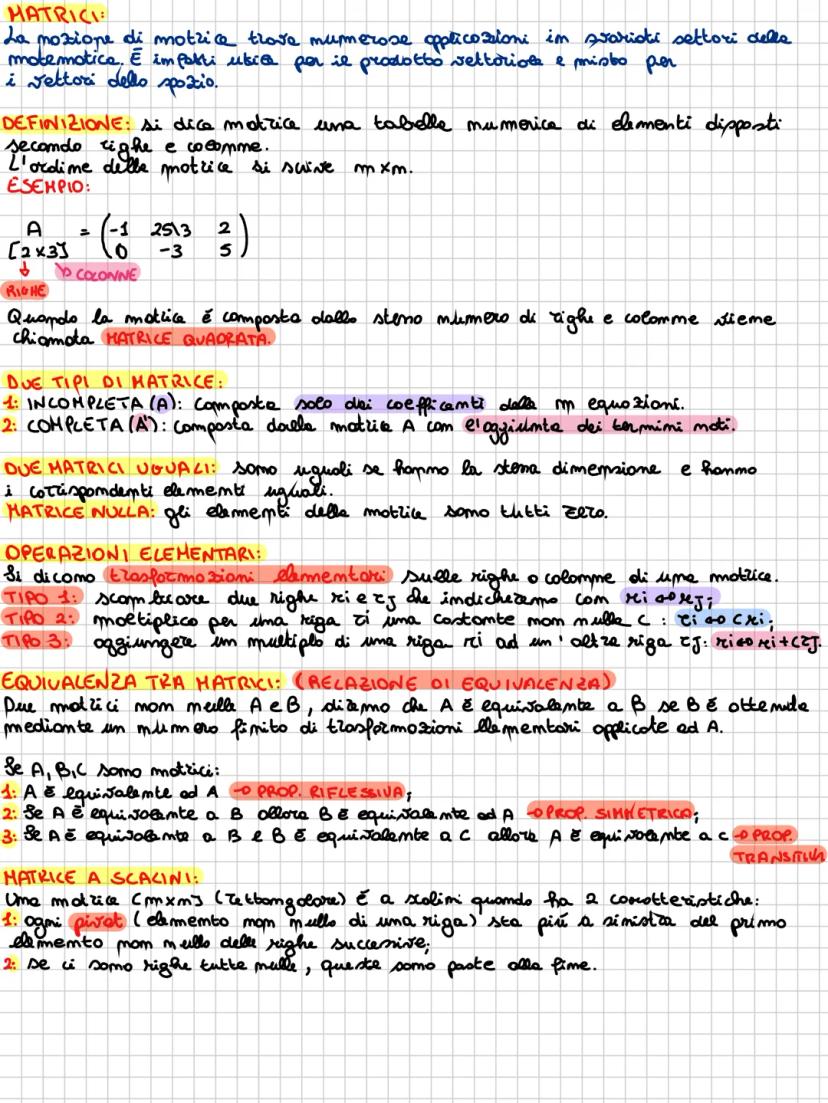 MATRICI:
La nozione di matrice trova numerose applicazioni in svariati settori della
matematica. È infatti utile per il prodotto vettoriale e misto per
i vettori dello spazio.
DEFINIZIONE: si dice matrice una tabella numerica di elementi disposti
secondo righe e colonne.
L'ordine della matrice si scrive m×n.
ESEMPIO:
A = (-1 25\3 2
[2×3] 0 -3 5)
↓ ↘ COLONNE
RIGHE
Quando la matrice é composta dallo stesso numero di righe e colonne viene
chiamata MATRICE QUADRATA.
DUE TIPI DI MATRICE:
1: INCOMPLETA (A): composta solo dai coefficienti delle m equazioni.
2: COMPLETA (A'): composta dalla matrice A con l'aggiunta dei termini noti.
DUE MATRICI UGUALI: sono uguali se hanno la stessa dimensione e hanno
i corrispondenti elementi uguali.
MATRICE NULLA: gli elementi della matrice sono tutti zero.
OPERAZIONI ELEMENTARI:
Si dicono trasformazioni elementari sulle righe o colonne di una matrice.
TIPO 1: scambiare due righe ri e rj che indicheremo con ri ↔ rj;
TIPO 2: moltiplico per una riga ri una costante non nulla c: ri ↔ cri;
TIPO 3: aggiungere un multiplo di una riga ri ad un'altra riga rj: ri ↔ ri+crj.
EQUIVALENZA TRA MATRICI: (RELAZIONE DI EQUIVALENZA)
Due matrici non nulle A e B, diremo che A è equivalente a B se B è ottenuta
mediante un numero finito di trasformazioni elementari applicate ad A.
Se A, B, C sono matrici:
1: A è equivalente ad A → PROP. RIFLESSIVA;
2: Se A è equivalente a B allora B è equivalente ad A → PROP. SIMMETRICA;
3: Se A è equivalente a B e B è equivalente a C allora A è equivalente a C → PROP.
TRANSITIVA
MATRICE A SCALINI:
Una matrice [m×n] (rettangolare) é a scalini quando ha 2 caratteristiche:
1: ogni pivot (elemento non nullo di una riga) sta piú a sinistra del primo
elemento non nullo delle righe successive;
2: se ci sono righe tutte nulle, queste sono poste alla fine.